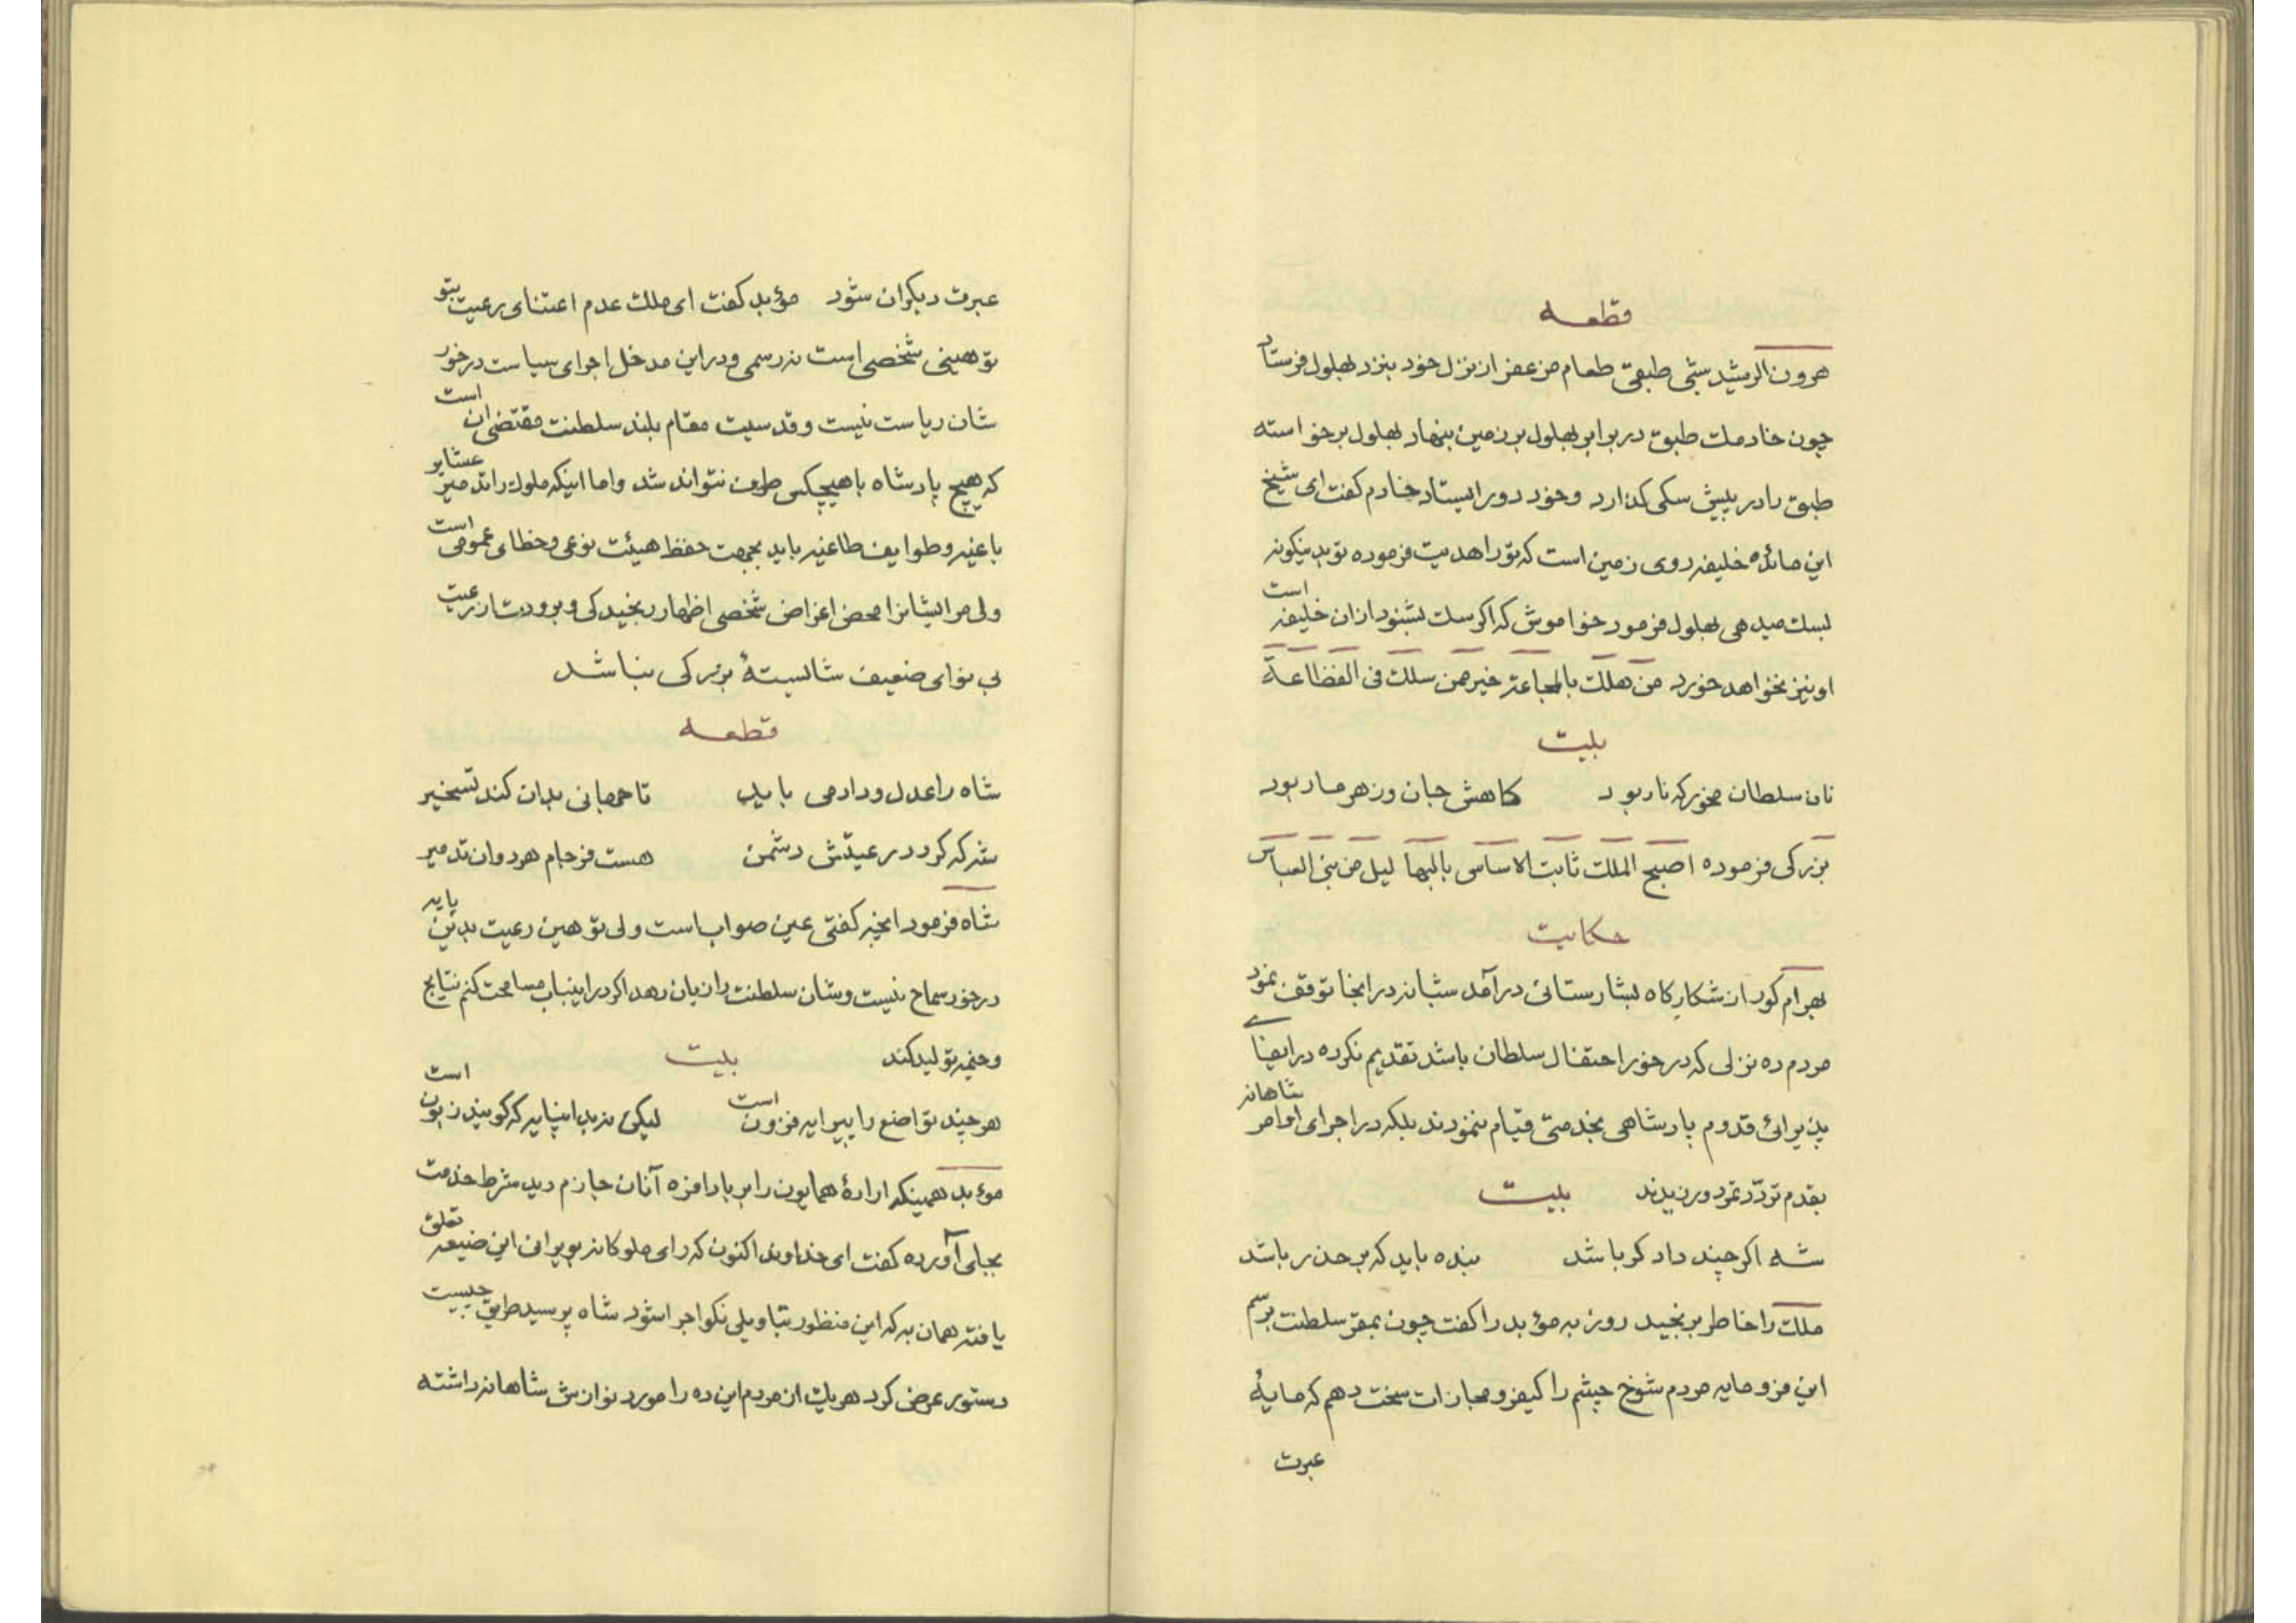 قطعه
هرون الرشید شبی طبقی طعام مزعفر از نزل خود بنزد بهلول فرستاد
چون خادمک طبق در برابر بهلول بر زمین بنهاد بهلول برخواسته
طبق را در پیش سکی کذارد وخود دور ایستاد خادم کفت ای شیخ
این مائده خلیفه روی زمین است که تو را هدیت فرموده تو بدینکونه
بسک میدهی بهلول فرمود خواموش که اکر سک بشنود از ان خلیفه است
او نیز نخواهد خورد من هلک بالمجاعة خیر ممن سلک فی الفظاعة
بیت
نان سلطان مخور که نار بود کاهش جان وزهر مار بود
بزرکی فرموده اصبح الملک ثابت الاساس بالبها لیل من بنی العباس
حکایت
بهرام کور از شکارکاه بشارستانی درآمد شبانه در انجا توقف نمود
مردم ده نزلی که درخور احتفال سلطان باشد تقدیم نکرده در ایفای
پذیرائی قدوم پادشاهی بخدمتی قیام ننمودند بلکه در اجرای اوامر شاهانه
بقدم تردّد تمرد ورزیدند بیت
شه اکر چند دادکر باشد بنده باید که بر حذر باشد
ملک را خاطر برنجید روز به مؤبد را کفت چون بمقر سلطنت برسم
این فرومایه مردم شوخ چشم را کیفر ومجازات سخت دهم که مایهٔ
عبرت
عبرت دیکران شود مؤبد کفت ای ملک عدم اعتنای رعیت بتو
توهینی شخصی است نه رسمی ودر این مدخل اجرای سیاست درخور
شان ریاست نیست وقدسیت مقام بلند سلطنت مقتضی ان است
که هیچ پادشاه با هیچکس طرف نتواند شد واما اینکه ملوک را تدمیر عشایر
باغیه وطوایف طاغیه باید بجهت حفظ هیئت نوعی وخطای عمومی است
ولی مر ایشانرا محض اغراض شخصی اظهار رنجیدکی وبرودت از رعیت
بی نوای ضعیف شایستهٔ بزرکی نباشد
قطعه
شاه را عدل وداد می باید تا جهانی بدان کند تسخیر
شه که کردد رعیتش دشمن هست فرجام هر دوان تدمیر
شاه فرمود انچه کفتی عین صواب است ولی توهین رعیت بدین پایه
درخور سماح نیست وشان سلطنت را زیان دهد اکر در اینباب مسامحت کنم نتایج
وخیمه تولید کند بیت
هر چند تواضع را پیرایه فزون است لیکن نه بد اینپایه که کویند زبون است
مؤبد همینکه ارادهٔ همایون را بر بادافره آنان جازم دید شرط خدمت
بجای آورده کفت ای خداوند اکنون که رای ملوکانه بویرانی این ضیعه تعلق
یافته همان به که این منظور بتاویلی نکو اجرا شود شاه پرسید طریق چیست
دستور عرض کرد هریک از مردم این ده را مورد نوازش شاهانه داشته